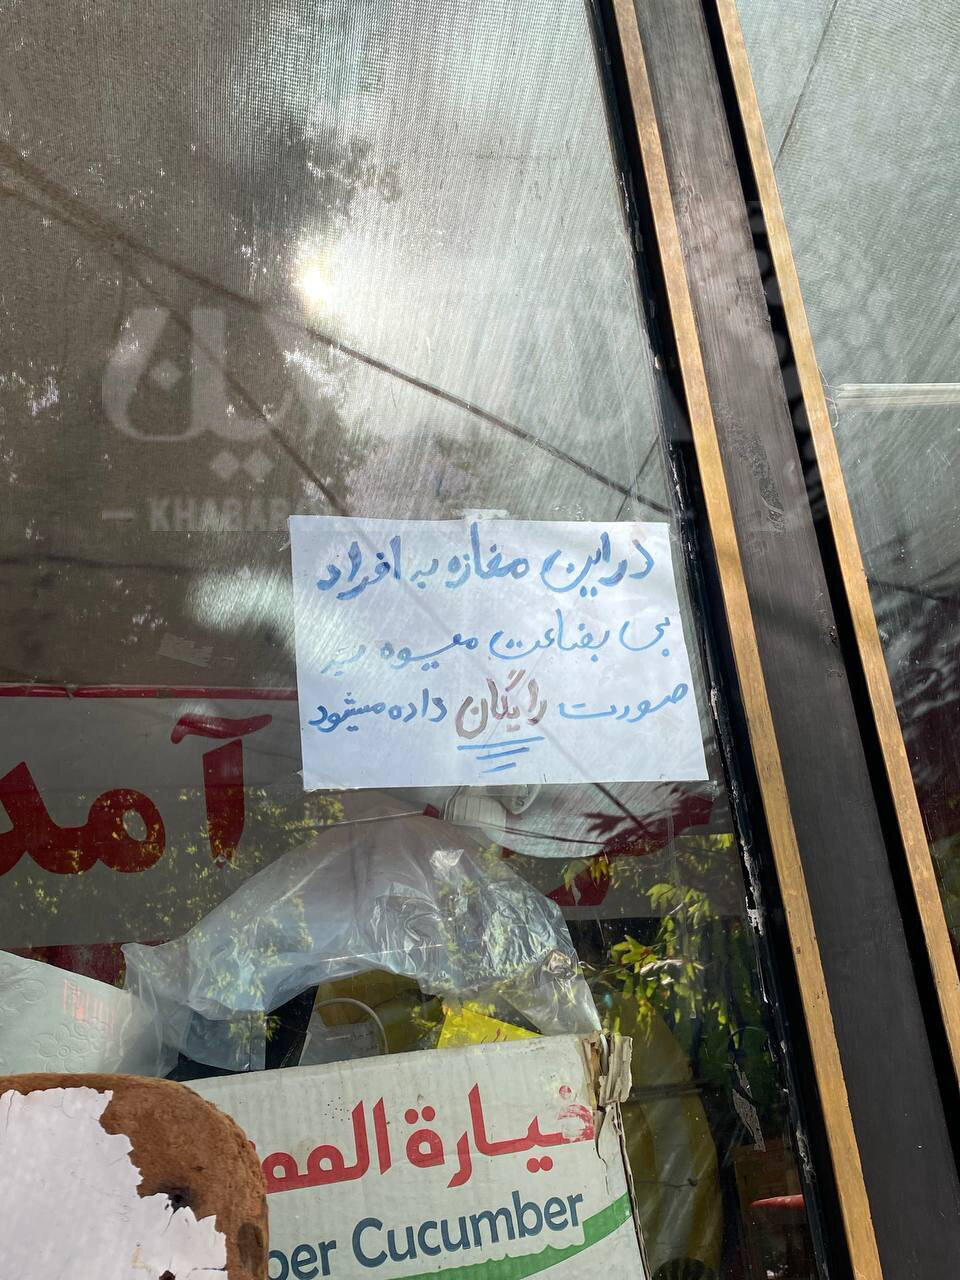 KHABAR
دراین مغازه به افراد
بی بضاعت میوه به
صورت رایگان داده میشود
آمد
خيارة المم
ber Cucumber